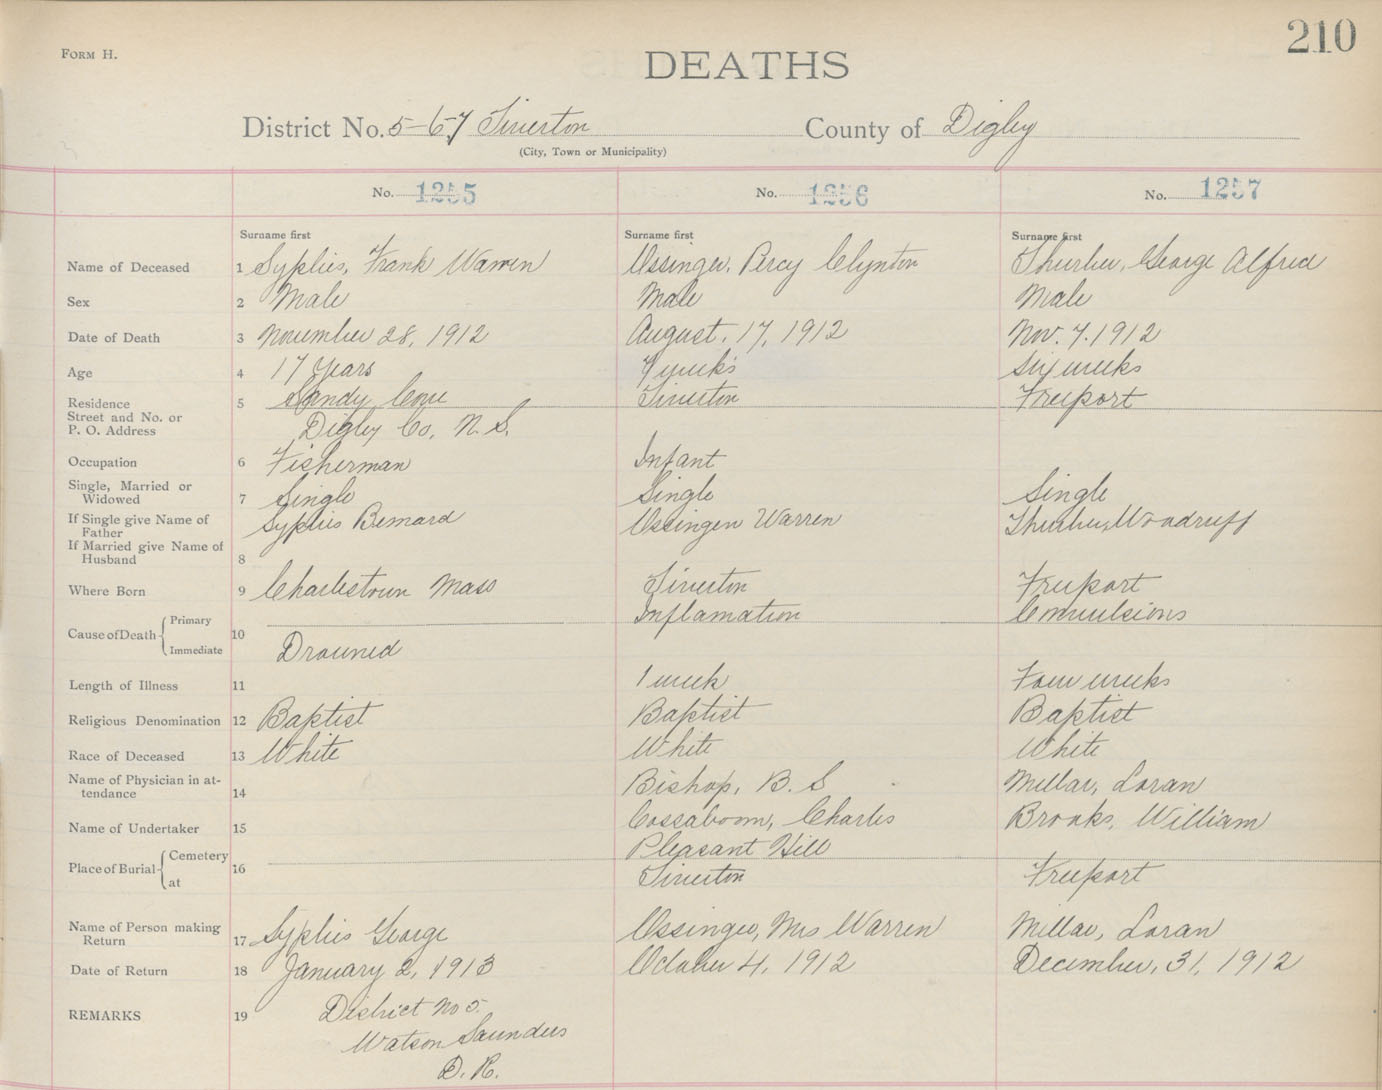 210
FORM H.
DEATHS
District No. 5-67 Tiverton County of Digby
(City, Town or Municipality)
No. 1255 No. 1256 No. 1257
Surname first Surname first Surname first
Name of Deceased 1 Syphis, Frank Warren Ossinger, Percy Clynton Thurber, George Alfred
Sex 2 Male Male Male
Date of Death 3 November 28, 1912 August, 17, 1912 Nov. 7. 1912
Age 4 17 Years 7 weeks six weeks
Residence 5 Sandy Cove Tiverton Freeport
Street and No. or
P. O. Address Digby Co, N. S.
Occupation 6 Fisherman Infant
Single, Married or
Widowed 7 Single Single Single
If Single give Name of Syphis Bernard Ossinger Warren Thurber, Woodruff
Father
If Married give Name of
Husband 8
Where Born 9 Charlestown Mass Tiverton Freeport
Cause of Death Primary 10 Inflamation Convulsions
Immediate Drowned
Length of Illness 11 1 week Four weeks
Religious Denomination 12 Baptist Baptist Baptist
Race of Deceased 13 White White White
Name of Physician in at-
tendance 14 Bishop, B. S Millar, Loran
Name of Undertaker 15 Cossaboom, Charles Brooks, William
Place of Burial Cemetery 16 Pleasant Hill
at Tiverton Freeport
Name of Person making
Return 17 Syphis George Ossinger, Mrs Warren Millar, Loran
Date of Return 18 January 2, 1913 October 4, 1912 December, 31, 1912
REMARKS 19 District No 5.
Watson Saunders
D. R.